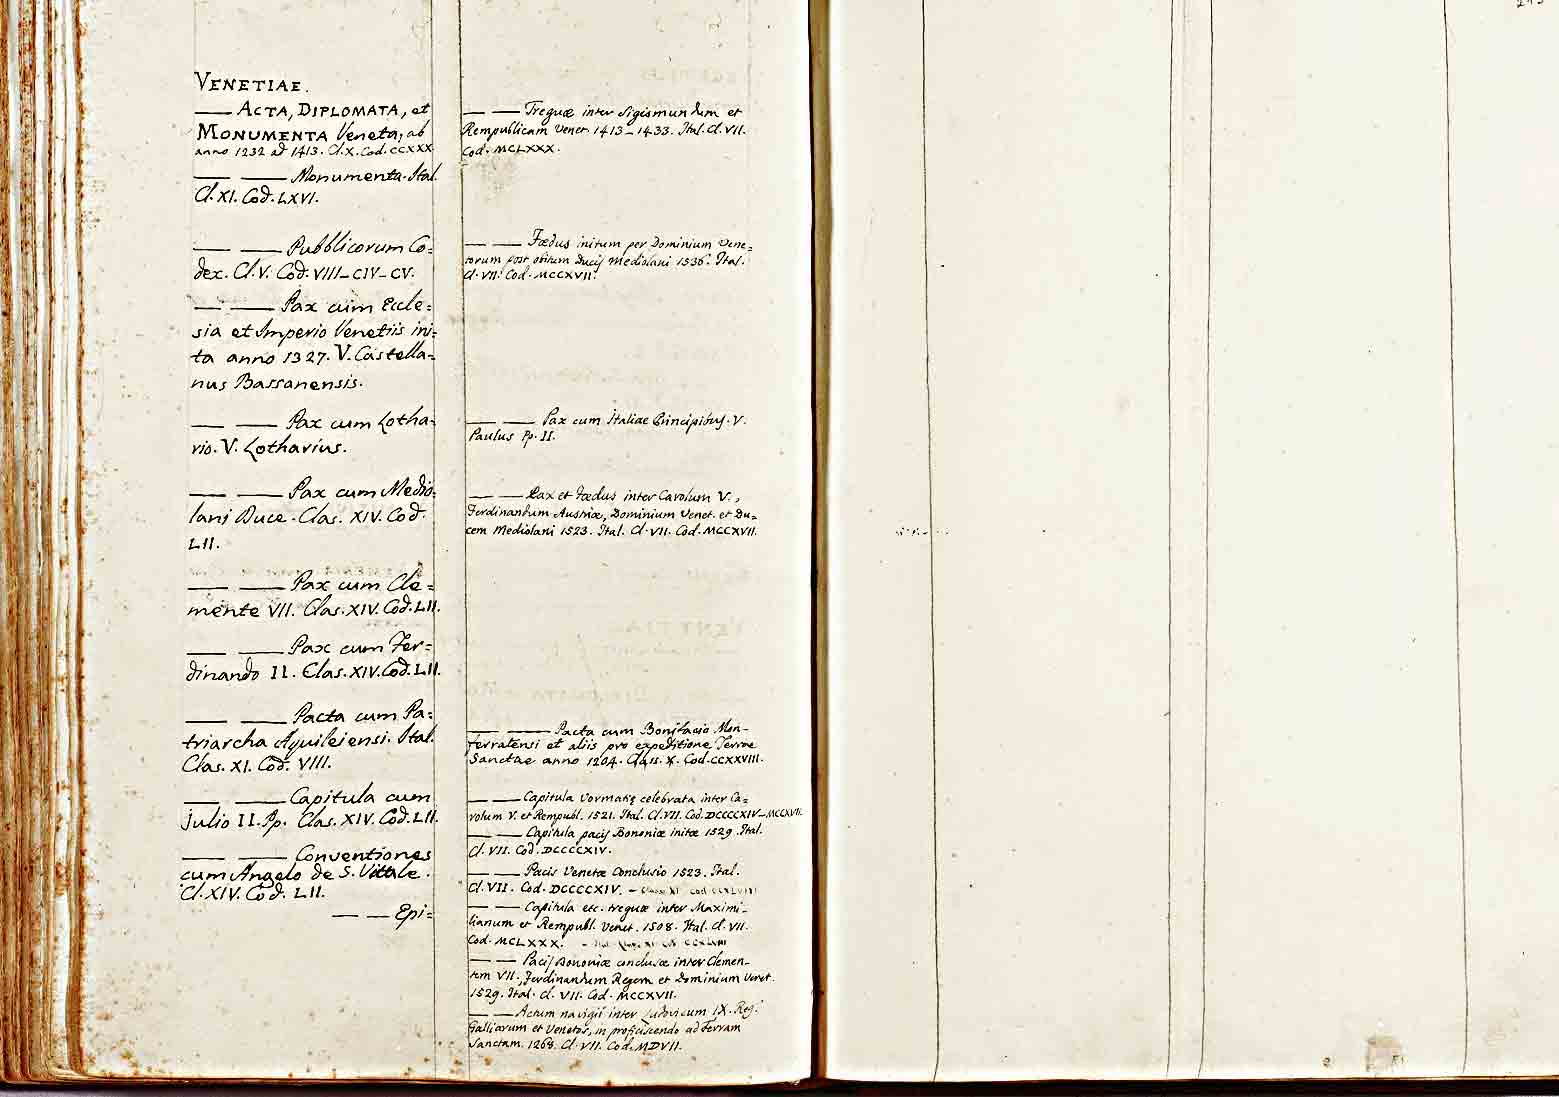 VENETIAE.
—— ACTA, DIPLOMATA, et
MONUMENTA Veneta, ab
anno 1232 ad 1413. Cl. X. Cod. CCXXX.
—— —— Monumenta. Ital.
Cl. XI. Cod. LXVI.
—— —— Pubblicorum Co=
dex. Cl. V. Cod. VIII_CIV_CV.
—— —— Pax cum Eccle=
sia et Imperio Venetiis ini=
ta anno 1327. V. Castella=
nus Bassanensis.
—— —— Pax cum Lotha=
rio. V. Lotharius.
—— —— Pax cum Medio=
lani Duce. Clas. XIV. Cod.
LII.
—— —— Pax cum Cle=
mente VII. Clas. XIV. Cod. LII.
—— —— Pax cum Fer=
dinando II. Clas. XIV. Cod. LII.
—— —— Pacta cum Pa=
triarcha Aquileiensi. Ital.
Clas. XI. Cod. VIII.
—— —— Capitula cum
Julio II. Pp. Clas. XIV. Cod. LII.
—— —— Conventiones
cum Angelo de S. Vitale.
Cl. XIV. Cod. LII.
—— —— Epi=
—— —— Treguæ inter Sigismundum et
Rempublicam Venet. 1413_1433. Ital. Cl. VII.
Cod. MCLXXX.
—— —— Fœdus initum per Dominium Vene=
torum post obitum Ducis Mediolani 1536. Ital.
Cl. VII. Cod. MCCXVII.
—— —— Pax cum Italiae Principibus. V.
Paulus Pp. II.
—— —— Pax et Fœdus inter Carolum V.,
Ferdinandum Austriæ, Dominium Venet. et Du=
cem Mediolani 1523. Ital. Cl. VII. Cod. MCCXVII.
—— —— Pacta cum Bonifacio Mon=
ferratensi et aliis pro expeditione Terrae
Sanctae anno 1204. Class. X. Cod. CCXXVIII.
—— —— Capitula Vormatiæ celebrata inter Ca=
rolum V. et Rempubl. 1521. Ital. Cl. VII. Cod. DCCCCXIV_MCCXVII.
—— —— Capitula pacis Bononiæ initæ 1529. Ital.
Cl. VII. Cod. DCCCCXIV.
—— —— Pacis Venetæ Conclusio 1523. Ital.
Cl. VII. Cod. DCCCCXIV. –
—— —— Capitula etc. treguæ inter Maximi=
lianum et Rempubl. Venet. 1508. Ital. Cl. VII.
Cod. MCLXXX. –
—— —— Pacis Bononiæ conclusæ inter Clemen=
tem VII., Ferdinandum Regem et Dominium Venet.
1529. Ital. Cl. VII. Cod. MCCXVII.
—— —— Actum navigii inter Ludovicum IX. Reg.
Galliarum et Venetos, in proficiscendo ad terram
Sanctam. 1268. Cl. VII. Cod. MDVII.